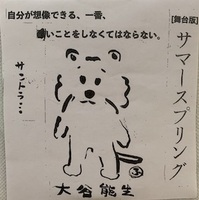 自分が想像できる、一番、
いことをしなくてはならない。
[舞台版]
サマースプリング
サントラ…
大谷能生